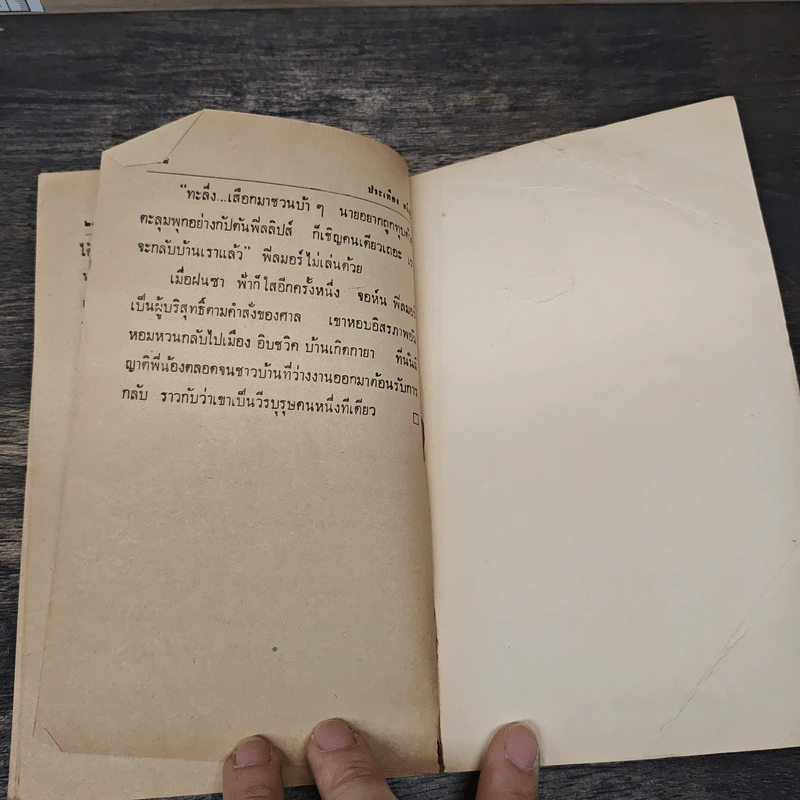 ประเทือง
"ทะลึ่ง...เสือกมาชวนบ้า ๆ นายอยากถูกทุบหัว
ตะลุมพุกอย่างกัปตันพี่ลลิปส์ ก็เชิญคนเดียวเถอะ
จะกลับบ้านเราแล้ว" พีลมอร์ไม่เล่นด้วย
เมื่อฝนซา ฟ้าก็ใสอีกครั้งหนึ่ง จอห์น พีลมอร์
เป็นผู้บริสุทธิ์ตามคำสั่งของศาล เขาหอบอิสรภาพอัน
หอมหวนกลับไปเมือง อิบชวิค บ้านเกิดกายา ที่นั่นมี
ญาติพี่น้องตลอดจนชาวบ้านที่ว่างงานออกมาต้อนรับการ
กลับ ราวกับว่าเขาเป็นวีรบุรุษคนหนึ่งทีเดียว